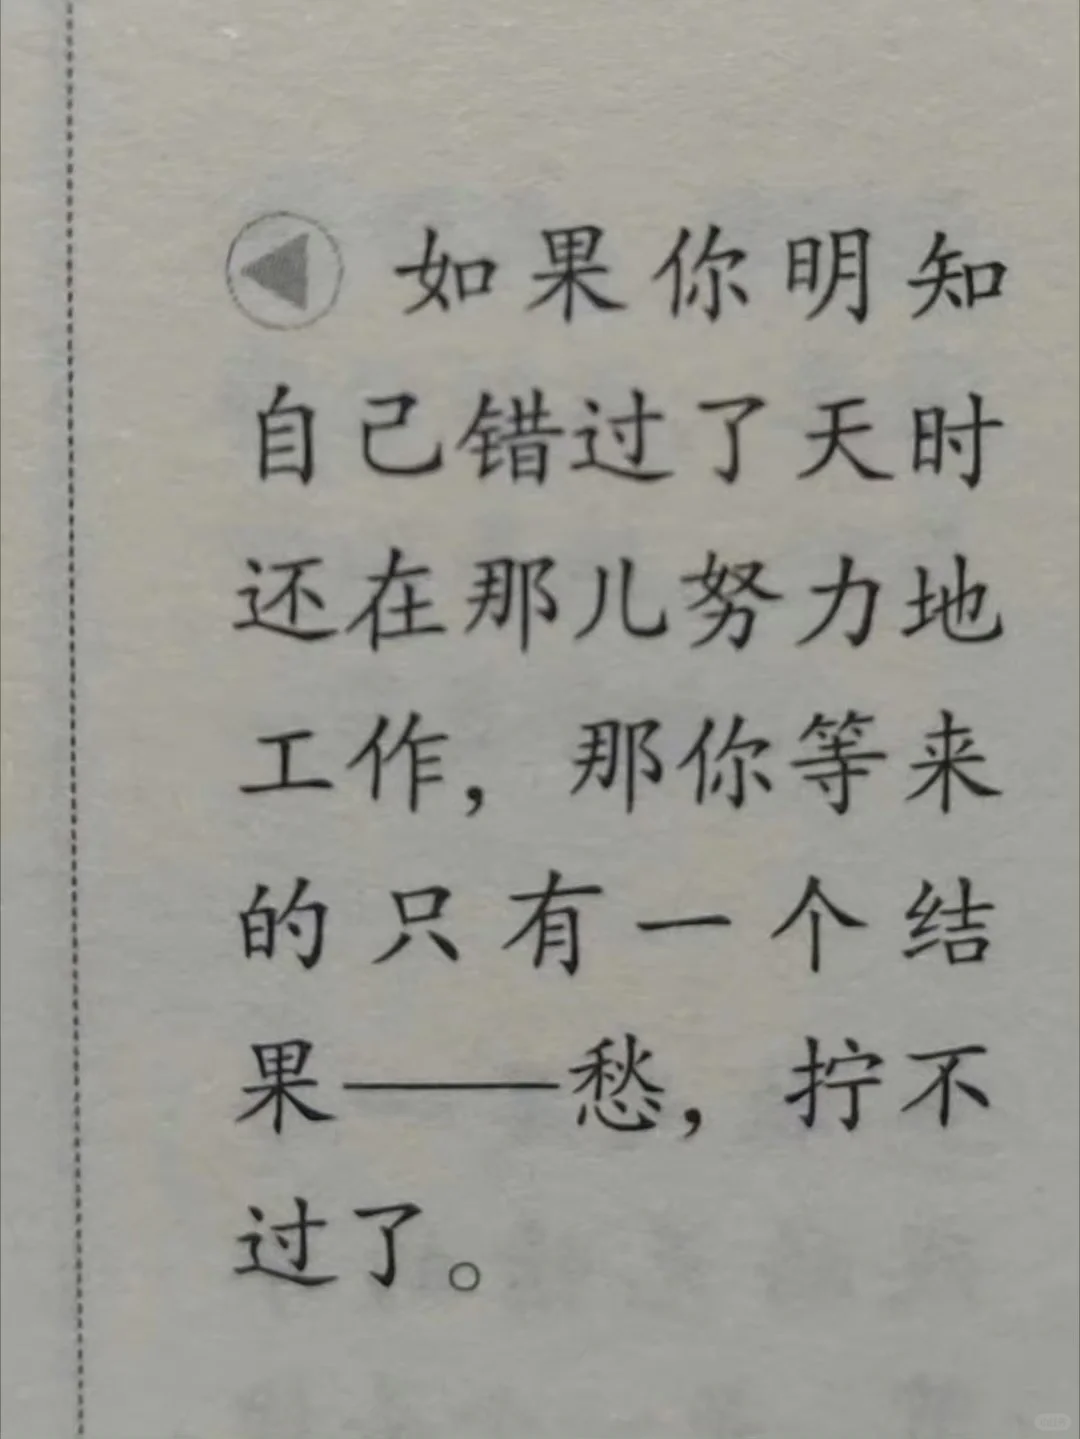 如果你明知
自己错过了天时
还在那儿努力地
工作，那你等来
的只有一个结
果——愁，拧不
过了。